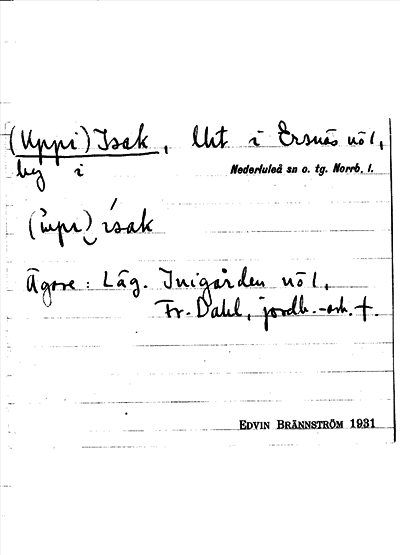 (Uppi) Isak, Uht i Ersnäs nöl,
by i Nederluleå sn o. tg. Norrb. l.
ísak
Ägare: Läg. Inigården nöl,
Fr. Dahl, jordb.-arb. †.
EDVIN BRÄNNSTRÖM 1931